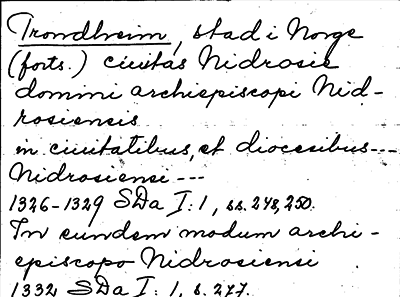 Trondheim, stad i Norge
(forts.) civitas Nidrosie
domini archiepiscopi Nid-
rosiensis
in civitatibus, et diocesibus---
Nidrosiensi ---
1326-1329 SDa I:1, ss. 248, 250.
In eundem modum archi-
episcopo Nidrosiensi
1332 SDa I:1, s. 277.